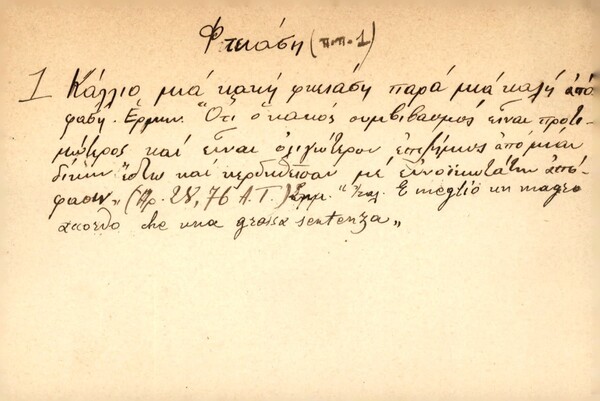 Φτειάση (π.π. 1)
1 Κάλλιο μιά κακή φτειάση παρά μιά καλή από
φαση. Ερμην. "Ότι ο κακός συμβιβασμός είναι προτι-
μώτερος καί είναι ολιγώτερον επιζήμιος από μίαν
δίκην έστω καί κερδηθείσαν μέ ευνοϊκωτάτην από-
φασιν„ (Αρ. 28,76 Α.Τ.) Σημ. "Ιταλ. E meglio un magro
accordo che una grassa sentenza„